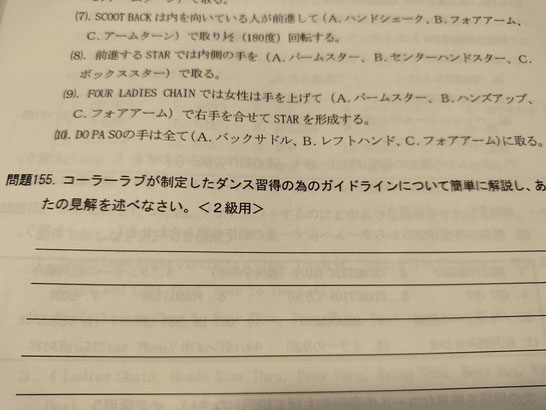 取る。
(7). SCOOT BACK は内を向いている人が前進して (A. ハンドシェーク、B. フォアアーム、
C. アームターン) で取り½ (180度) 回転する。
(8). 前進する STAR では内側の手を (A. パームスター、B. センターハンドスター、C.
ボックススター) で取る。
(9). FOUR LADIES CHAIN では女性は手を上げて (A. パームスター、B. ハンズアップ、
C. フォアアーム) で右手を合せて STAR を形成する。
(10). DO PA SO の手は全て (A. バックサドル、B. レフトハンド、C. フォアアーム) に取る。
問題155. コーラーラブが制定したダンス習得の為のガイドラインについて簡単に解説し、あ
たの見解を述べなさい。<2級用>